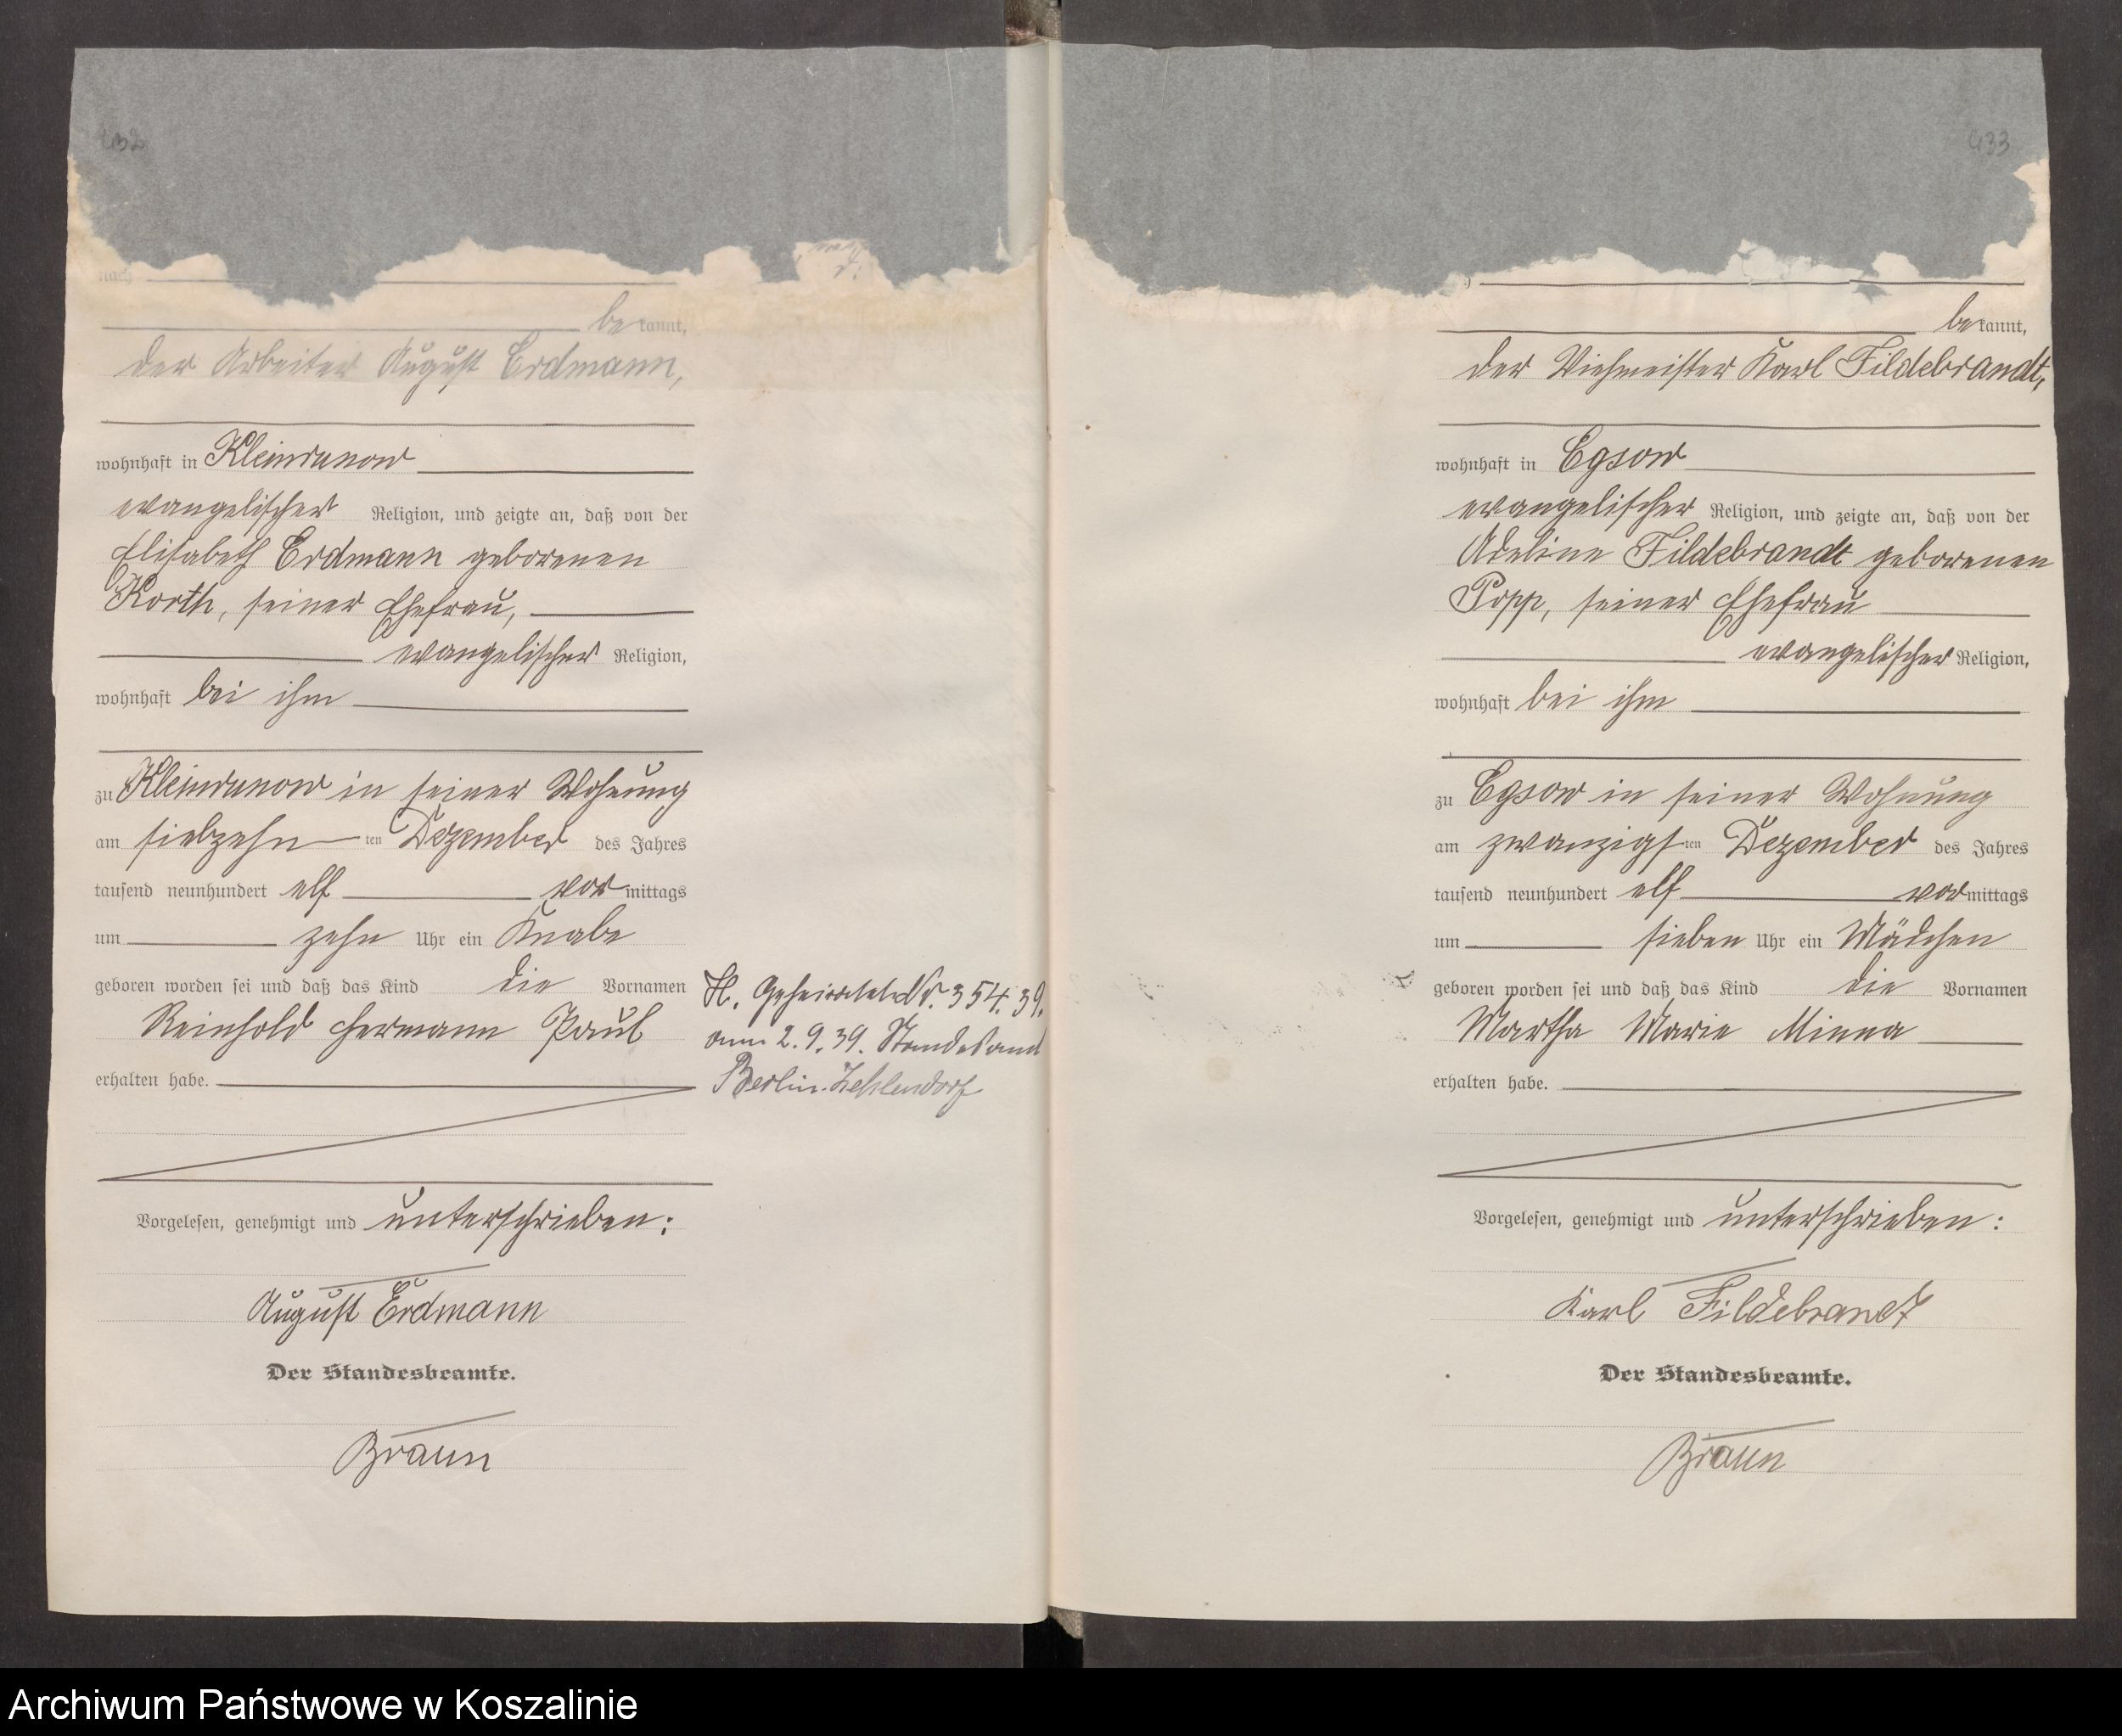 432
nach
be kannt,
der Arbeiter August Erdmann,
wohnhaft in Kleinrunow
evangelischer Religion, und zeigte an, daß von der
Elisabeth Erdmann geborenen
Korth, seiner Ehefrau,
evangelischer Religion,
wohnhaft bei ihm
zu Kleinrunow in seiner Wohnung
am siebzehn ten Dezember des Jahres
tausend neunhundert elf vor mittags
um zehn Uhr ein Knabe
geboren worden sei und daß das Kind die Vornamen
Reinhold Hermann Paul
erhalten habe.
H. Geheiratet Nr. 354.39.
am 2.9.39. Standesamt
Berlin-Zehlendorf
Vorgelesen, genehmigt und unterschrieben:
August Erdmann
Der Standesbeamte.
Braun
433
be kannt,
der Viehmeister Karl Fildebrandt,
wohnhaft in Egsow
evangelischer Religion, und zeigte an, daß von der
Adeline Fildebrandt geborenen
Popp, seiner Ehefrau
evangelischer Religion,
wohnhaft bei ihm
zu Egsow in seiner Wohnung
am zwanzigs ten Dezember des Jahres
tausend neunhundert elf vor mittags
um sieben Uhr ein Mädchen
geboren worden sei und daß das Kind die Vornamen
Martha Marie Minna
erhalten habe.
Vorgelesen, genehmigt und unterschrieben:
Karl Fildebrandt
Der Standesbeamte.
Braun
Archiwum Państwowe w Koszalinie